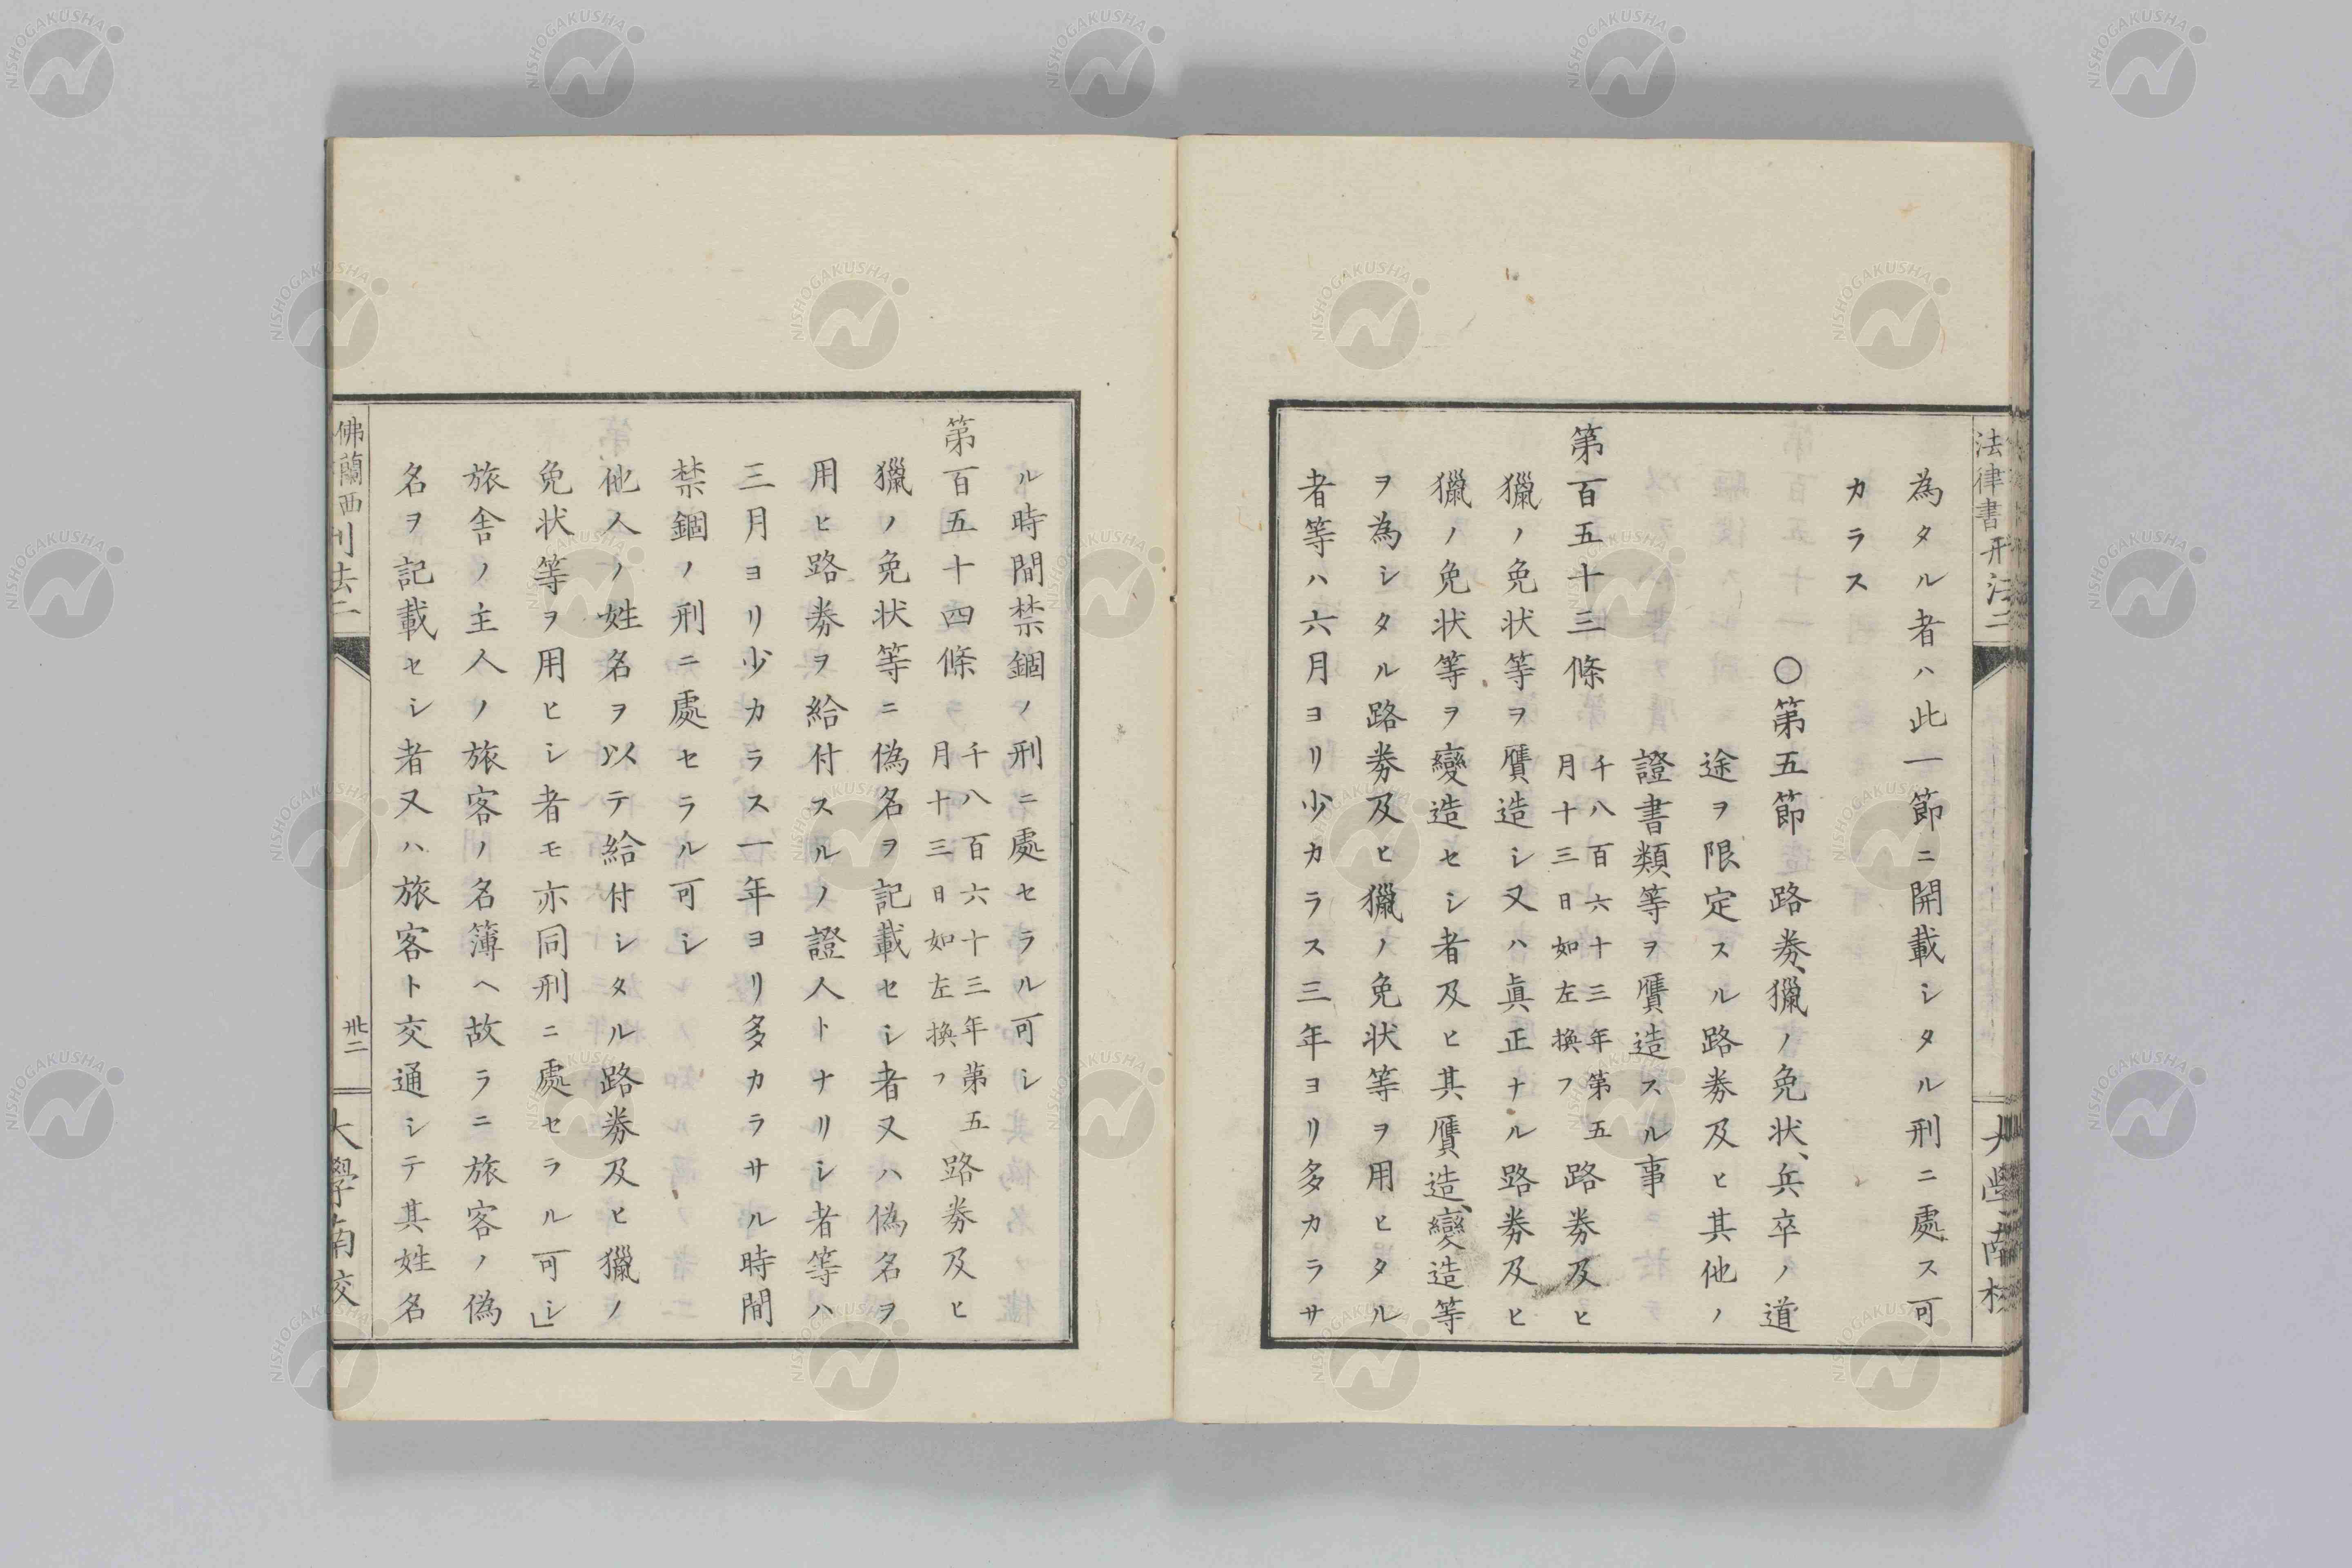 法律書刑法二
為タル者ハ此一節ニ開載シタル刑ニ處ス可
カラス
〇第五節 路劵、獵ノ免状、兵卒ノ道
途ヲ限定スル路劵及ヒ其他ノ
證書類等ヲ贋造スル事
第百五十三條 千八百六十三年第五月十三日如左換フ 路劵及ヒ
獵ノ免状等ヲ贋造シ又ハ眞正ナル路劵及ヒ
獵ノ免状等ヲ變造セシ者及ヒ其贋造、變造等
ヲ為シタル路劵及ヒ獵ノ免状等ヲ用ヒタル
者等ハ六月ヨリ少カラス三年ヨリ多カラサ
ル時間禁錮ノ刑ニ處セラル可シ
第百五十四條 千八百六十三年第五月十三日如左換フ 路劵及ヒ
獵ノ免状等ニ偽名ヲ記載セシ者又ハ偽名ヲ
用ヒ路劵ヲ給付スルノ證人トナリシ者等ハ
三月ヨリ少カラス一年ヨリ多カラサル時間
禁錮ノ刑ニ處セラル可シ
他人ノ姓名ヲ以テ給付シタル路劵及ヒ獵ノ
免状等ヲ用ヒシ者モ亦同刑ニ處セラル可シ」
旅舎ノ主人ノ旅客ノ名簿ヘ故ラニ旅客ノ偽
名ヲ記載セシ者又ハ旅客ト交通シテ其姓名
佛蘭西刑法二
卅二
大學南校
NISHOGAKUSHA